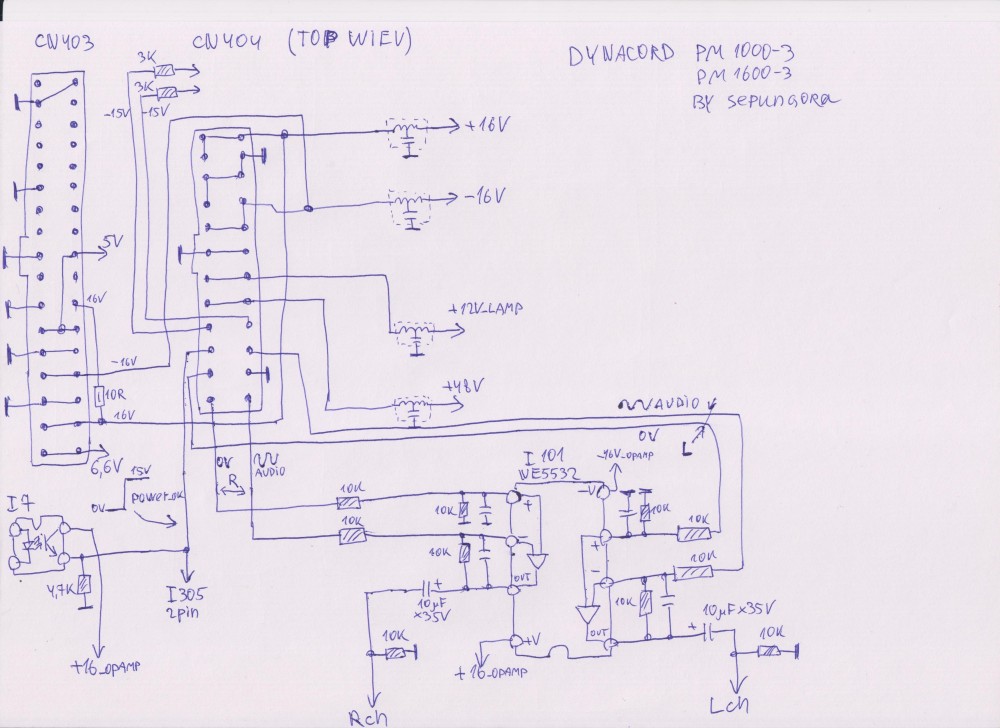 CN403
CN404 (TOP WIEV)
DYNACORD PM 1000-3
PM 1600-3
BY sepungora
3K
3K
-15V
-15V
+16V
-16V
5V
16V
+12V_LAMP
-16V
10R
+48V
16V
AUDIO
0V
L
6,6V
0V
AUDIO
R
I 101
WE5532
-16V_OPAMP
15V
0V
POWER_OK
I7
10K
10K
10K
10K
-V
+
-
OUT
10K
10K
10K
+
-
OUT
10K
4,7K
I305
2pin
+
10µF
x35V
10µF x35V
+
10K
+V
10K
+16_OPAMP
+16_OPAMP
Rch
Lch